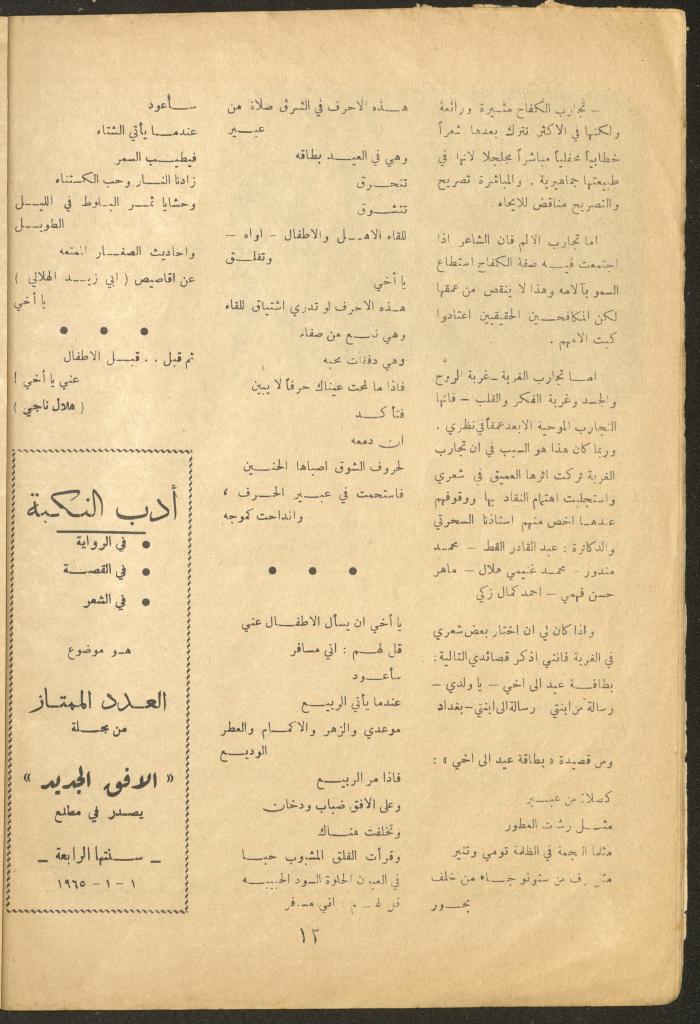 ـ تجارب الكفاح مثيرة ورائعة
ولكنها في الاكثر تترك بعدها شعراً
خطابياً محفلياً مباشراً مجلجلا لانها في
طبيعتها جماهيرية . والمباشرة تصريح
والتصريح مناقض للايحاء .
اما تجارب الالم فان الشاعر اذا
اجتمعت فيه صفة الكفاح استطاع
السمو بآلامه وهذا لا ينقص من عمقها
لكن المكافحين الحقيقيين اعتادوا
كبت الامهم .
اما تجارب الغربة ـ غربة الروح
والجسد وغربة الفكر والقلب ـ فانها
التجارب الموحية الابعد عمقاً في نظري .
وربما كان هذا هو السبب في ان تجارب
الغربة تركت اثرها العميق في شعري
واستجلبت اهتمام النقاد بها ووقوفهم
عندها اخص منهم استاذنا السحرتي
والدكاترة : عبد القادر القط ـ محمد
مندور ـ محمد غنيمي هلال ـ ماهر
حسن فهمي ـ احمد كمال زكي
واذا كان لي ان اختار بعض شعري
في الغربة فانني اذكر قصائدي التالية :
بطاقة عيد الى اخي ـ يا ولدي ـ
رسالة من ابنتي رسالة الى ابنتي ـ بغداد
ومن قصيدة « بطاقة عيد الى اخي » :
كصلاة من عبير
مثل رشات العطور
مثلما النجمة في الظلمة تومي وتنير
من سنونو جاء من خلف
بحور
هذه الاحرف في الشرق صلاة من
عبير
وهي في العيد بطاقه
تتحرق
تتشوق
للقاء الاهل والاطفال ـ اواه ـ
وتقلق
يا أخي
هذه الاحرف لو تدري اشتياق للقاء
وهي نبع من صفاء
وهي دفقات محبه
فاذا ما لمحت عيناك حرفاً لا يبين
فتأكد
ان دمعه
لحروف الشوق اصباها الحنين
فاستحمت في عبير الحرف ،
وانداحت كموجه
● ● ●
يا أخي ان يسأل الاطفال عني
قل لهم : اني مسافر
سأعود
عندما يأتي الربيع
موعدي والزهر والاكمام والعطر
الوديع
فاذا مر الربيع
وعلى الافق ضباب ودخان
وتخلفت هناك
وقرأت القلق المشبوب حبا
في العيون الحلوة السود الحبيبه
قل لهم : اني مسافر
سأعود
عندما يأتي الشتاء
فيطيب السمر
زادنا النار وحب الكستناء
وحشايا ثمر البلوط في الليل
الطويل
واحاديث الصغار الممتعه
عن اقاصيص ( ابي زيد الهلالي )
يا أخي
● ● ●
ثم قبل .. قبل الاطفال
عني يا أخي !
( هلال ناجي )
أدب النكبة
● في الرواية
● في القصة
● في الشعر
هو موضوع
العدد الممتاز
من مجلة
« الافق الجديد »
يصدر في مطلع
ـ سنتها الرابعة ـ
١ - ١ - ١٩٦٥
١٣